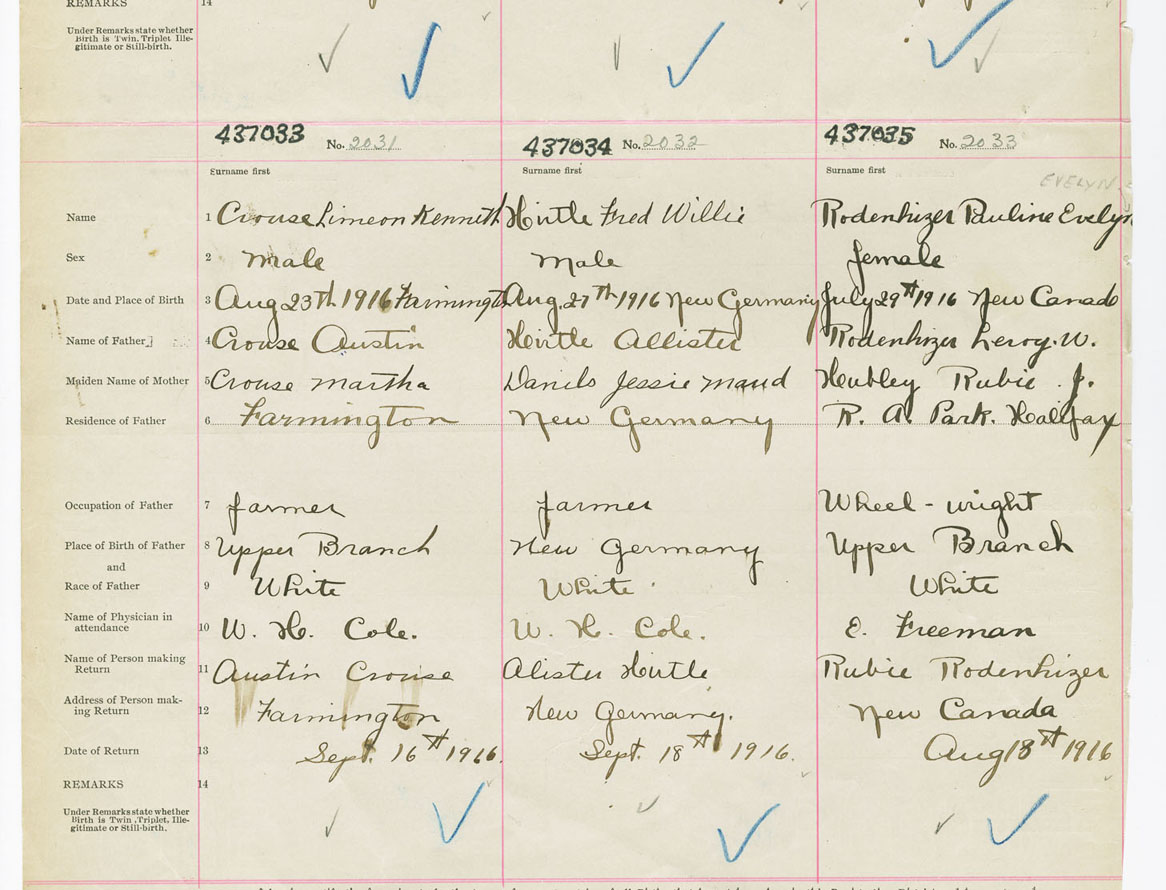 REMARKS 14
Under Remarks state whether
Birth is Twin, Triplet, Ille-
gitimate or Still-birth.
437033 No. 2031 437034 No. 2032 437035 No. 2033
Surname first Surname first Surname first
EVELYN
Name 1 Crouse Simeon Kenneth Hirtle Fred Willie Rodenhizer Pauline Evelyn
Sex 2 Male Male female
Date and Place of Birth 3 Aug 23th 1916 Farmingt Aug. 27th 1916 New Germany July 29th 1916 New Canad
Name of Father 4 Crouse Austin Hirtle Allister Rodenhizer Leroy. W.
Maiden Name of Mother 5 Crouse Martha Daniels Jessie Maud Hubley Rubie J.
Residence of Father 6 Farmington New Germany R. A. Park. Halifax
Occupation of Father 7 farmer farmer Wheel-wright
Place of Birth of Father 8 Upper Branch New Germany Upper Branch
and
Race of Father 9 White White White
Name of Physician in
attendance 10 W. H. Cole. W. H. Cole. E. Freeman
Name of Person making
Return 11 Austin Crouse Alister Hirtle Rubie Rodenhizer
Address of Person mak-
ing Return 12 Farmington New Germany. New Canada
Date of Return 13 Sept. 16th 1916. Sept. 18th 1916. Aug 18th 1916
REMARKS 14
Under Remarks state whether
Birth is Twin, Triplet, Ille-
gitimate or Still-birth.